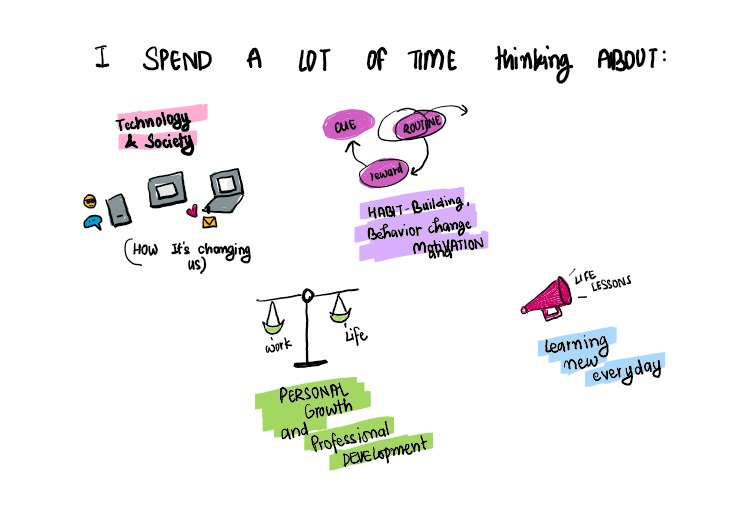 I SPEND A LOT OF TIME thinking ABOUT:
Technology
& Society
(HOW It's changing
us)
CUE
ROUTINE
reward
HABIT-Building,
Behavior change
and
MOTIVATION
work
Life
PERSONAL
Growth
and
Professional
DEVElopment
LIFE
LESSONS
Learning
new
everyday